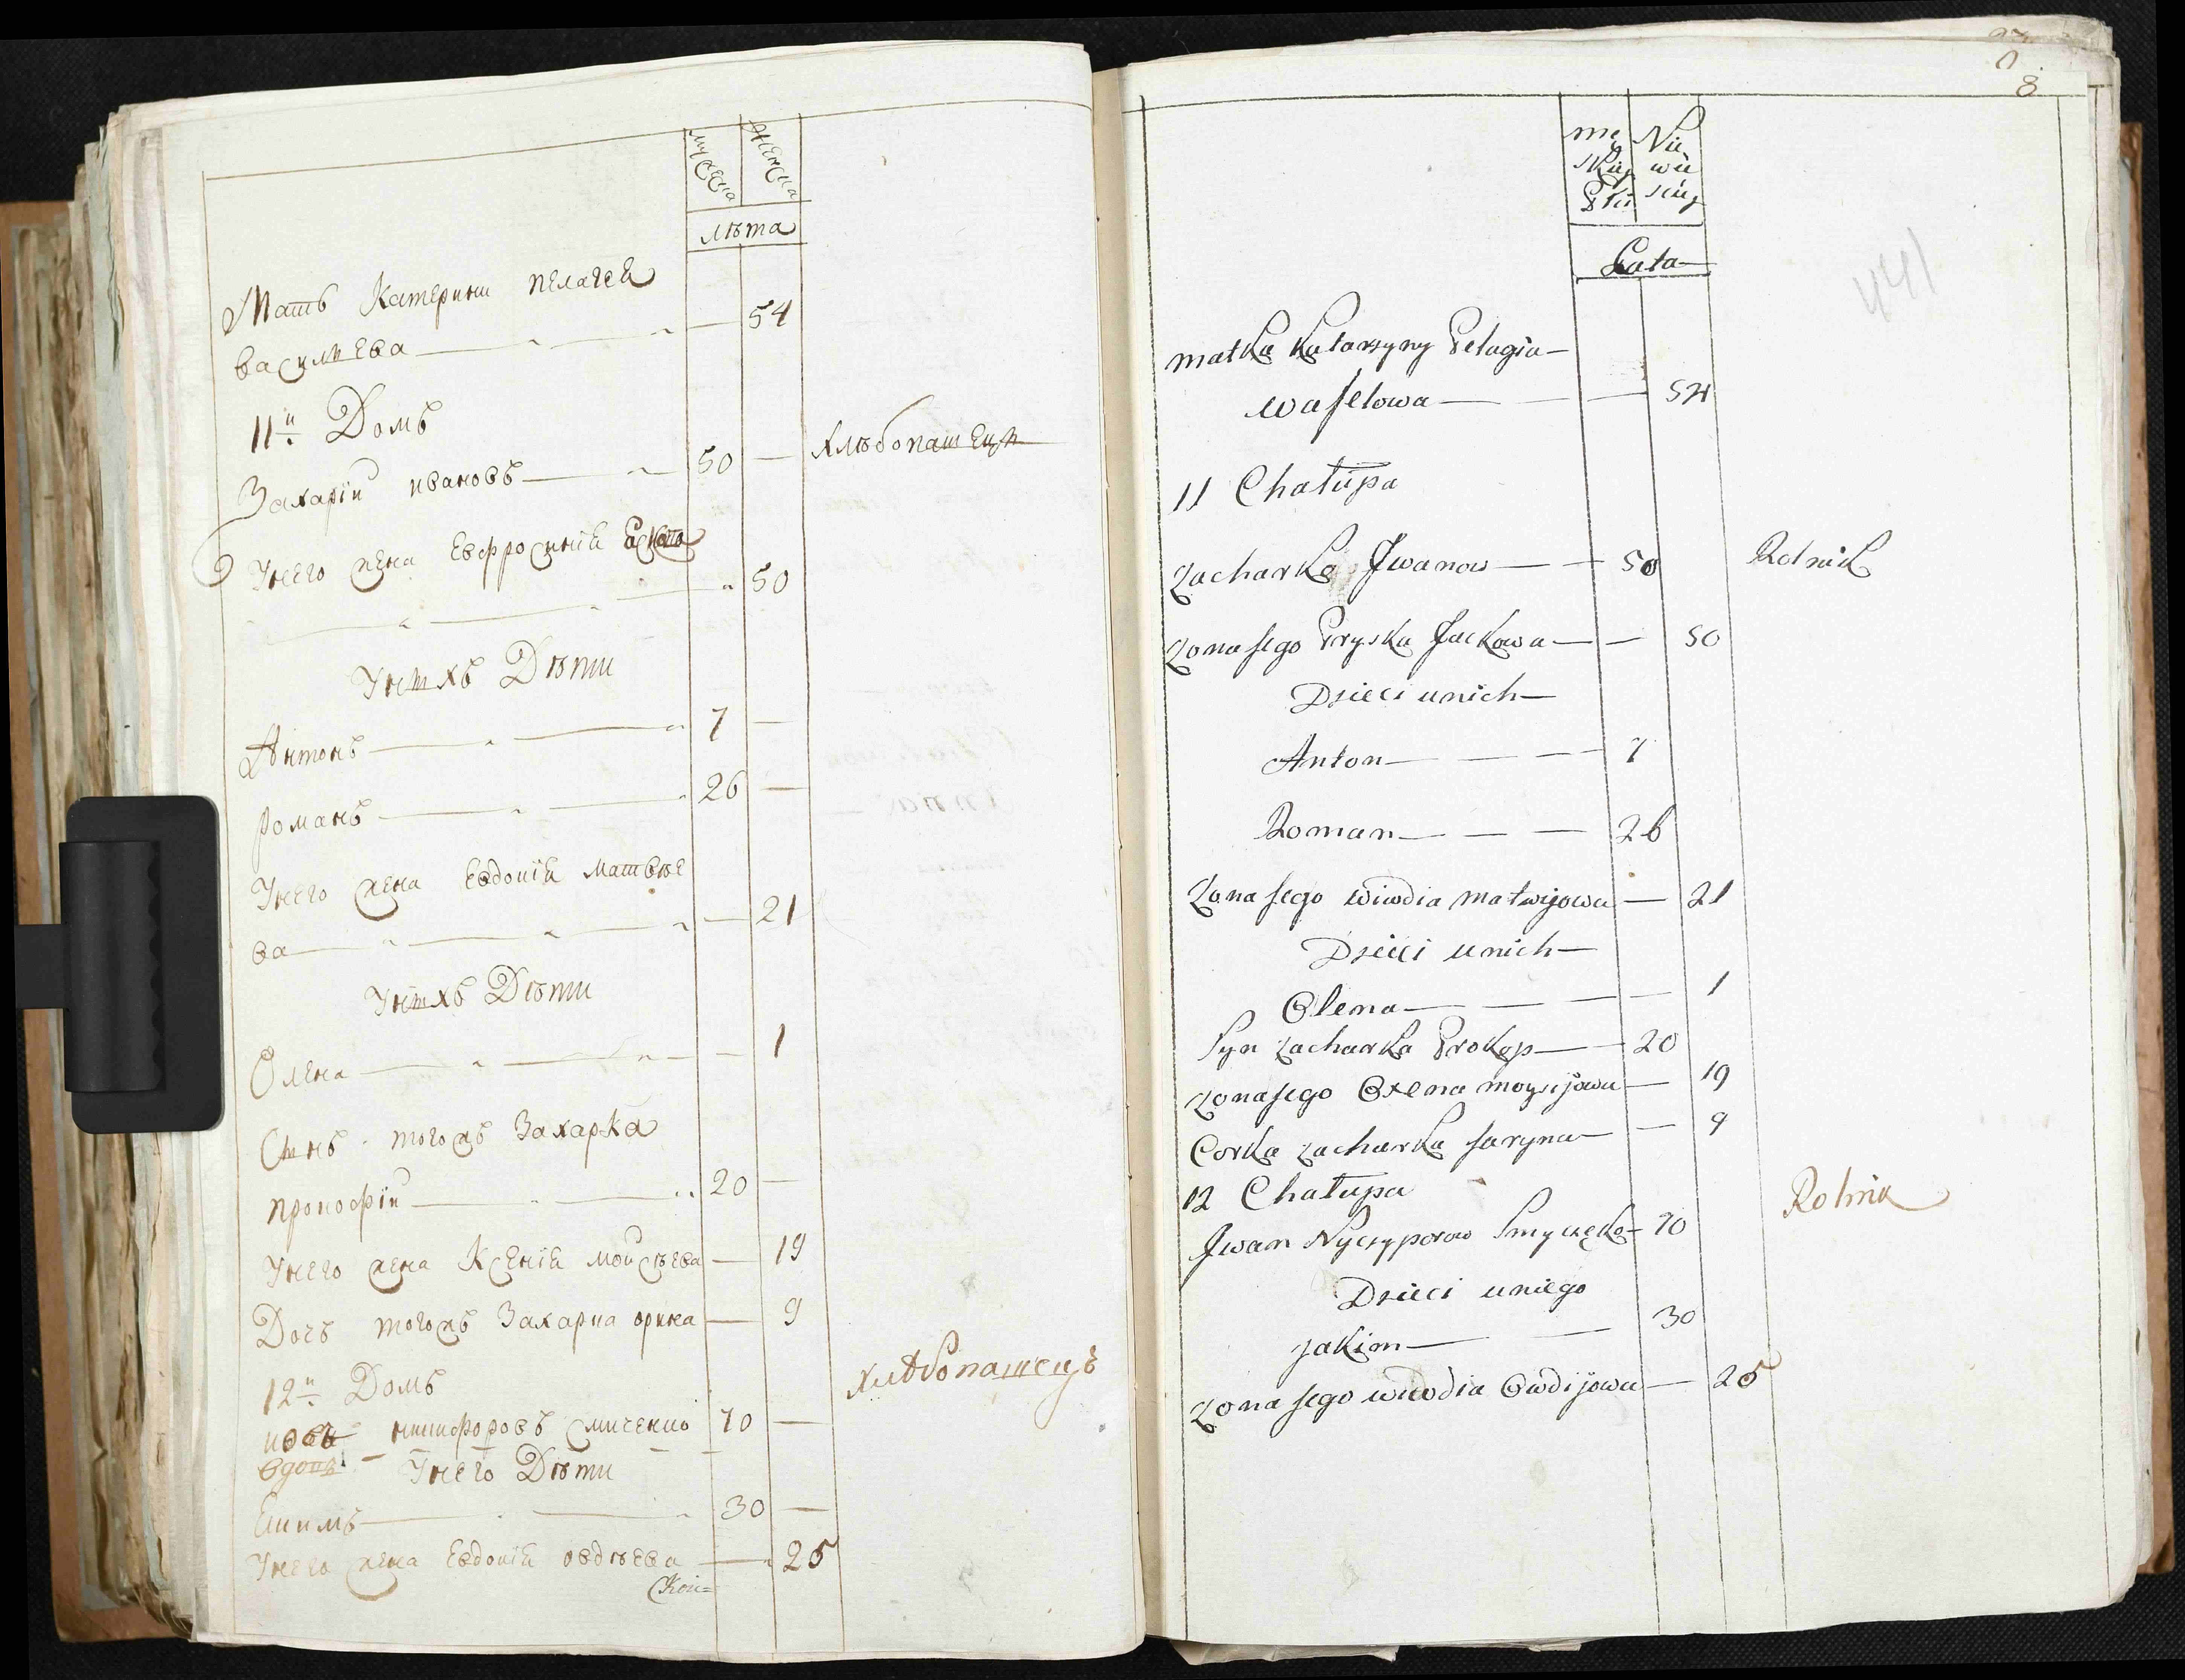 мужеска женска
лѣта
Мать Катерини пелагей
василиева 54
11й Домъ
Захарій ивановъ 50 — хлѣбопашецъ
У него жена Евфросинія
50
У нихъ Дѣти
Антонъ 7 —
Романъ 26 —
У него жена Евдокія Матвѣе
ва — 21
У нихъ Дѣти
Олена — 1
Синъ тогожъ Захарка
прокофій 20 —
У него жена Ксенія мойсѣева — 19
Дочъ тогожъ Захарка орина — 9
12й Домъ хлѣбопашецъ
никифоровъ Смиченко 70 —
вдовц У него Дѣти
Екимъ 30 —
У него жена Евдокія овдѣева — 25
8
mę Nie
skiey wie
Płci sciey
Lata
441
matka Katarzyny Pelagia
waselowa — 54
11 Chałupa
Zacharko Jwanow — 50 Rolnik
Zona jego Pryska Jackowa — 50
Dzieci unich
Anton — 7
Roman — 26
Zona jego wiwdia matwijowa — 21
Dzieci unich
Olena — 1
Syn Zacharka Prokop — 20
Zona jego Oxena moysijowa — 19
Corka Zacharka Jaryna — 9
12 Chałupa
Jwan Nyczyporow Smyczęko 70 Rolnik
Dzieci uniego
Jakim — 30
Zona jego wiwdia Owdijowa — 25